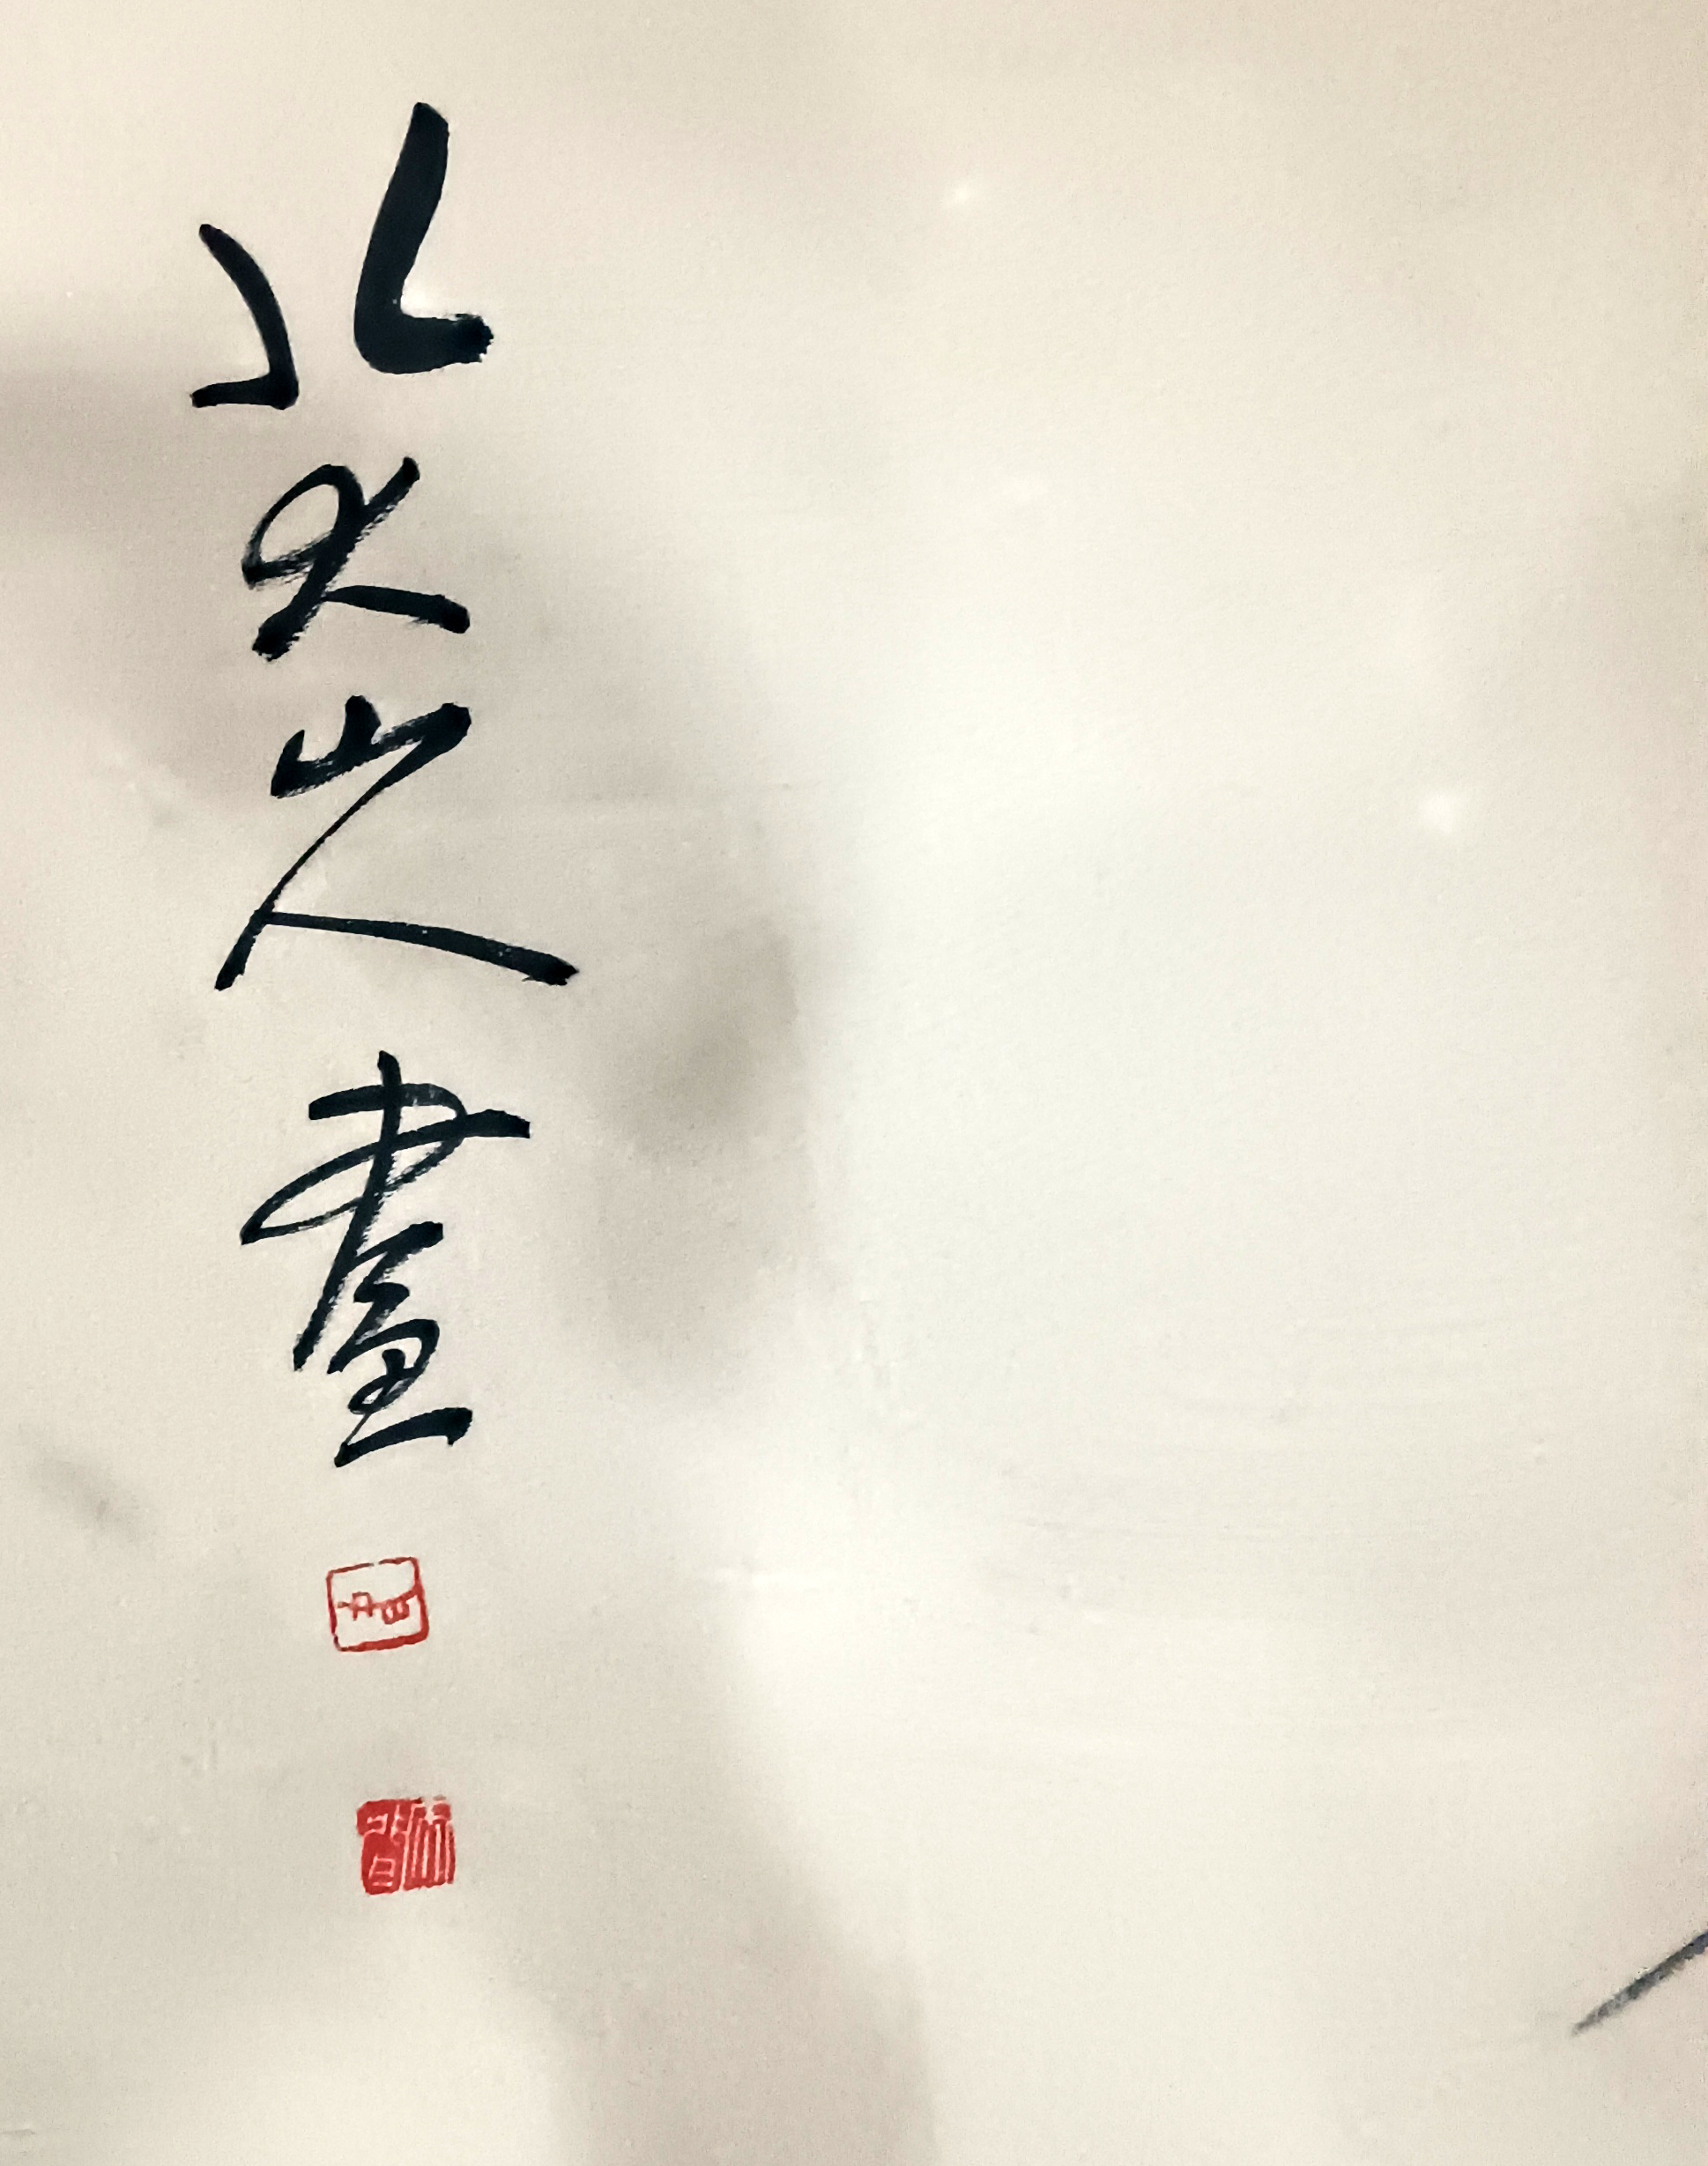 八大山人畫